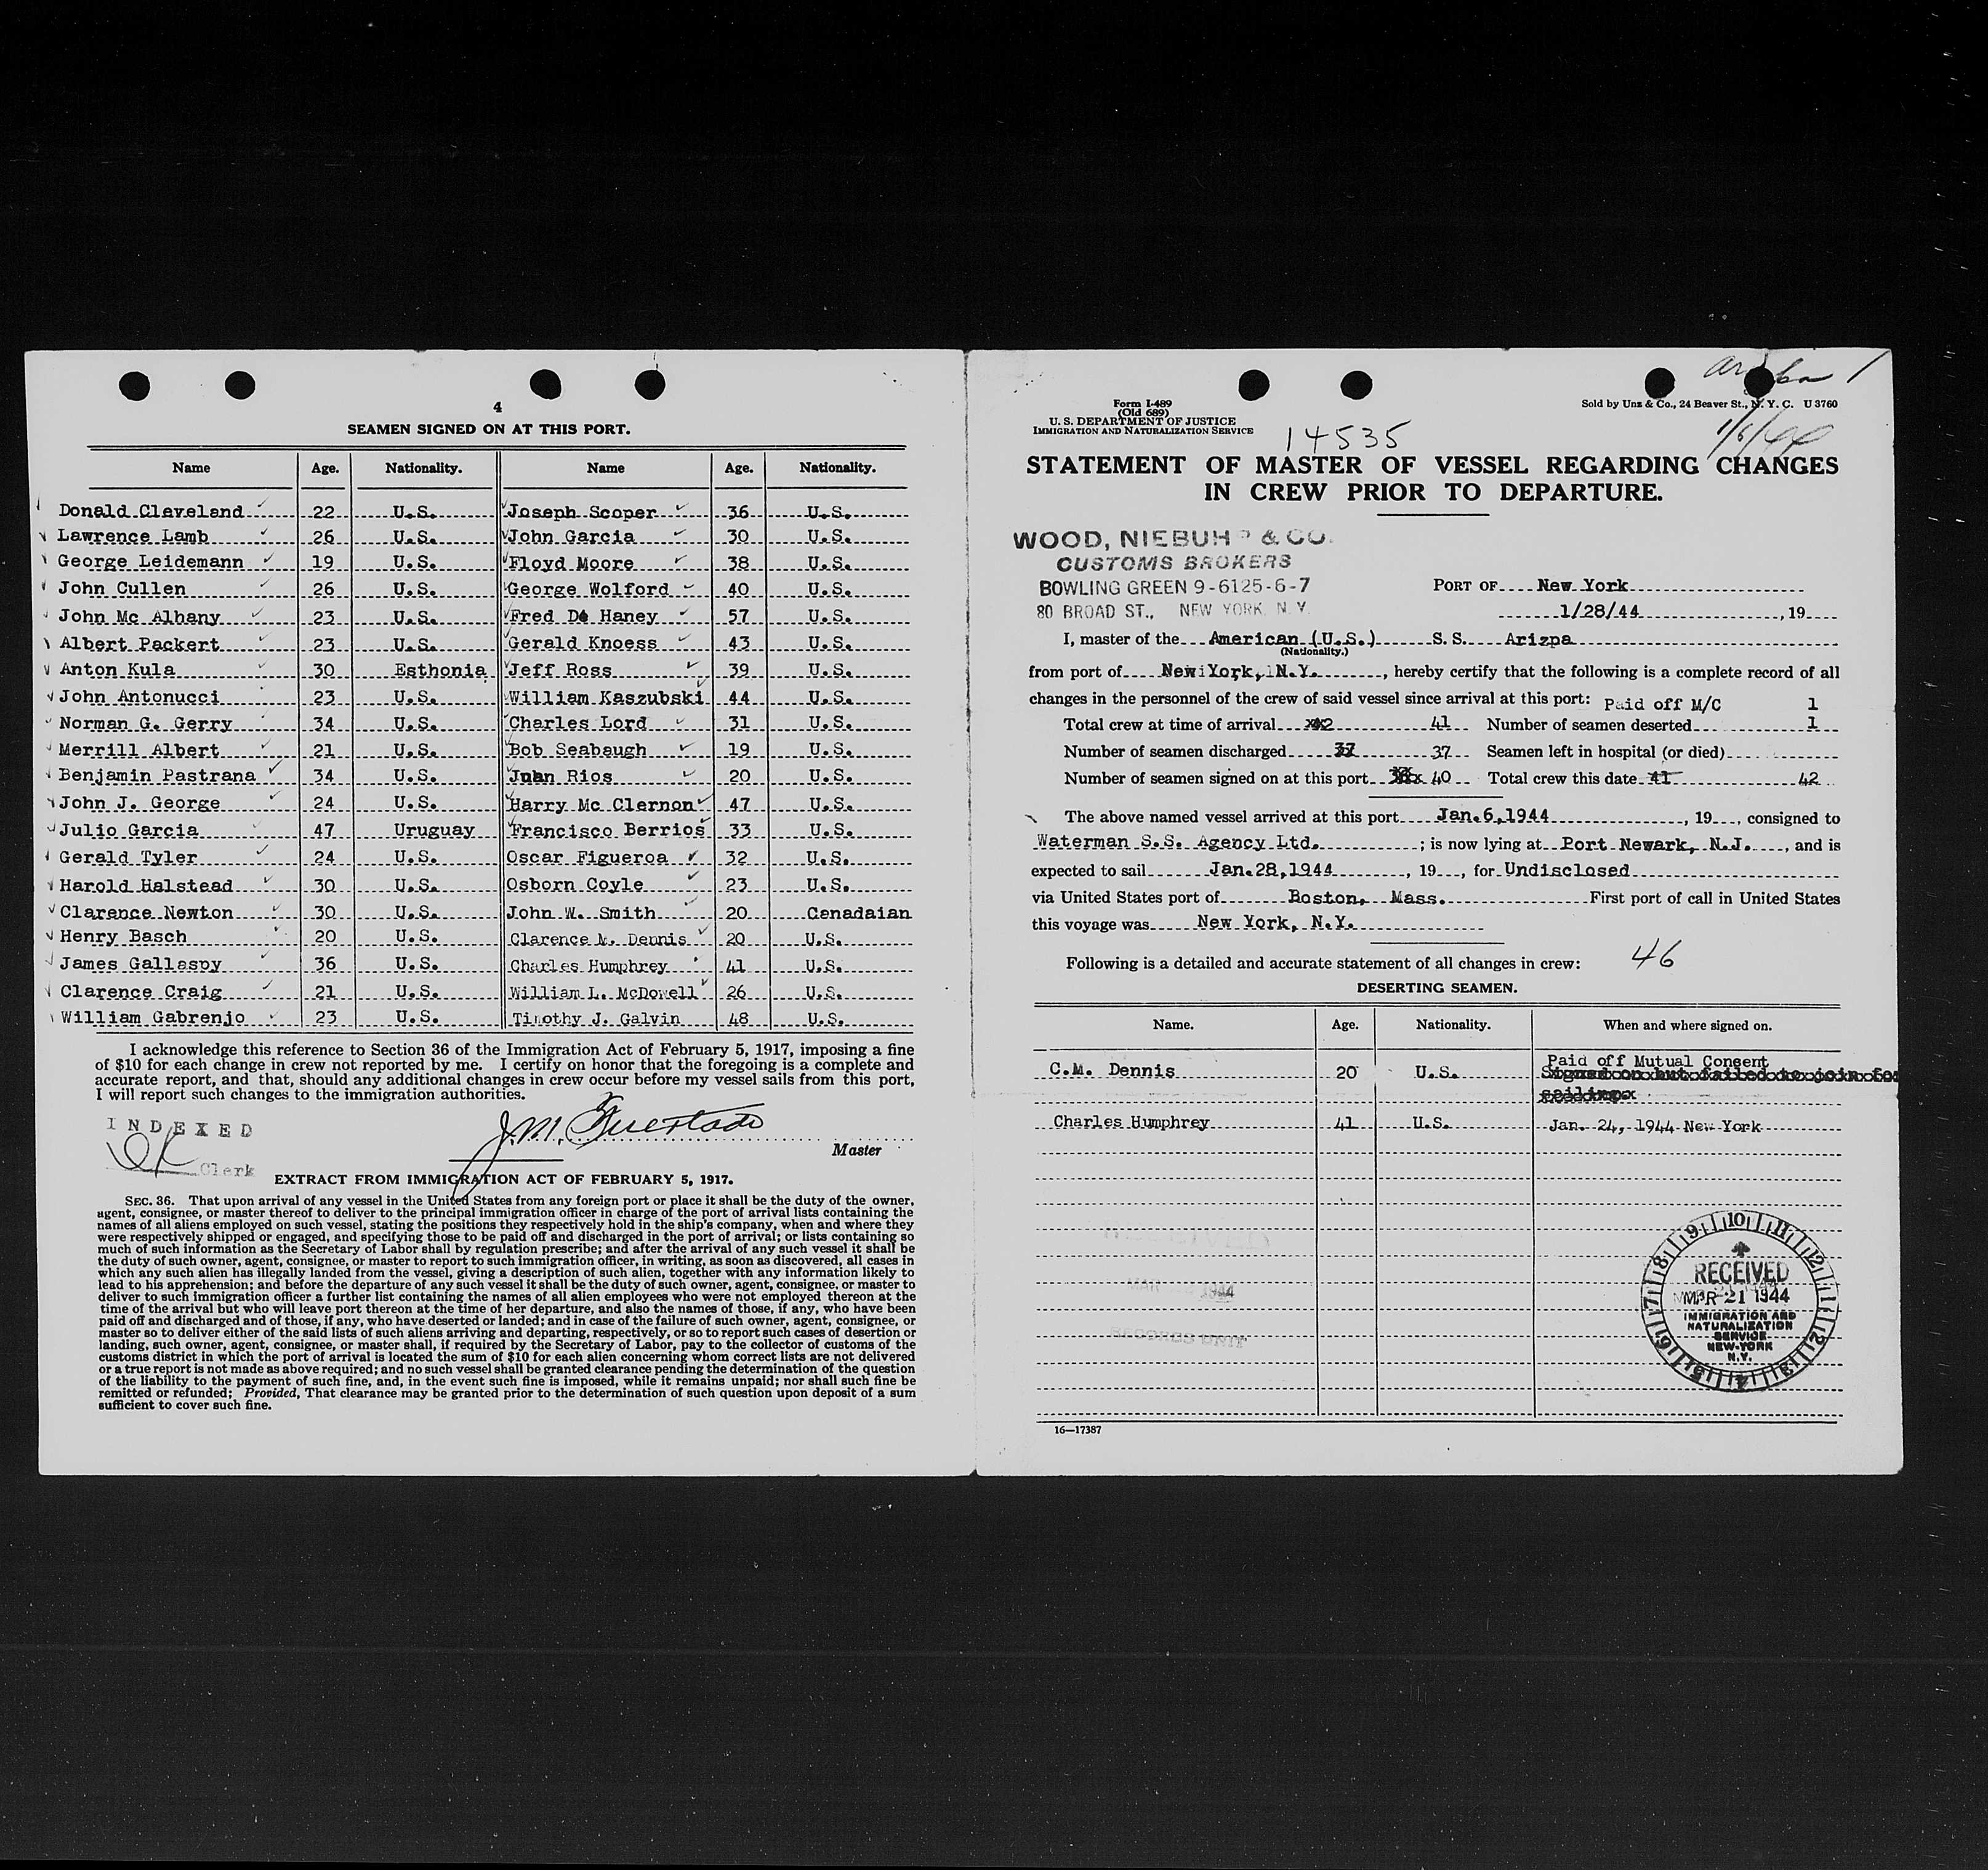 4
SEAMEN SIGNED ON AT THIS PORT.
Name Age. Nationality. Name Age. Nationality.
Donald Cleveland 22 U.S. Joseph Scoper 36 U.S.
Lawrence Lamb 26 U.S. John Garcia 30 U.S.
George Leidemann 19 U.S. Floyd Moore 38 U.S.
John Cullen 26 U.S. George Wolford 40 U.S.
John Mc Albany 23 U.S. Fred De Haney 57 U.S.
Albert Packert 23 U.S. Gerald Knoess 43 U.S.
Anton Kula 30 Esthonia Jeff Ross 39 U.S.
John Antonucci 23 U.S. William Kaszubski 44 U.S.
Norman G. Gerry 34 U.S. Charles Lord 31 U.S.
Merrill Albert 21 U.S. Bob Seabaugh 19 U.S.
Benjamin Pastrana 34 U.S. Juan Rios 20 U.S.
John J. George 24 U.S. Harry Mc Clernon 47 U.S.
Julio Garcia 47 Uruguay Francisco Berrios 33 U.S.
Gerald Tyler 24 U.S. Oscar Figueroa 32 U.S.
Harold Halstead 30 U.S. Osborn Coyle 23 U.S.
Clarence Newton 30 U.S. John W. Smith 20 Canadaian
Henry Basch 20 U.S. Clarence M. Dennis 20 U.S.
James Gallaspy 36 U.S. Charles Humphrey 41 U.S.
Clarence Craig 21 U.S. William L. McDowell 26 U.S.
William Gabrenjo 23 U.S. Timothy J. Galvin 48 U.S.
I acknowledge this reference to Section 36 of the Immigration Act of February 5, 1917, imposing a fine
of $10 for each change in crew not reported by me. I certify on honor that the foregoing is a complete and
accurate report, and that, should any additional changes in crew occur before my vessel sails from this port,
I will report such changes to the immigration authorities.
INDEXED
OK Clerk
J.M.
Master
EXTRACT FROM IMMIGRATION ACT OF FEBRUARY 5, 1917.
SEC. 36. That upon arrival of any vessel in the United States from any foreign port or place it shall be the duty of the owner,
agent, consignee, or master thereof to deliver to the principal immigration officer in charge of the port of arrival lists containing the
names of all aliens employed on such vessel, stating the positions they respectively hold in the ship's company, when and where they
were respectively shipped or engaged, and specifying those to be paid off and discharged in the port of arrival; or lists containing so
much of such information as the Secretary of Labor shall by regulation prescribe; and after the arrival of any such vessel it shall be
the duty of such owner, agent, consignee, or master to report to such immigration officer, in writing, as soon as discovered, all cases in
which any such alien has illegally landed from the vessel, giving a description of such alien, together with any information likely to
lead to his apprehension; and before the departure of any such vessel it shall be the duty of such owner, agent, consignee, or master to
deliver to such immigration officer a further list containing the names of all alien employees who were not employed thereon at the
time of the arrival but who will leave port thereon at the time of her departure, and also the names of those, if any, who have been
paid off and discharged and of those, if any, who have deserted or landed; and in case of the failure of such owner, agent, consignee, or
master so to deliver either of the said lists of such aliens arriving and departing, respectively, or so to report such cases of desertion or
landing, such owner, agent, consignee, or master shall, if required by the Secretary of Labor, pay to the collector of customs of the
customs district in which the port of arrival is located the sum of $10 for each alien concerning whom correct lists are not delivered
or a true report is not made as above required; and no such vessel shall be granted clearance pending the determination of the question
of the liability to the payment of such fine, and, in the event such fine is imposed, while it remains unpaid; nor shall such fine be
remitted or refunded; Provided, That clearance may be granted prior to the determination of such question upon deposit of a sum
sufficient to cover such fine.
Form I-489
(Old 689)
U. S. DEPARTMENT OF JUSTICE
IMMIGRATION AND NATURALIZATION SERVICE
14535
Sold by Unz & Co., 24 Beaver St., N. Y. C. U 3760
1/6/44
STATEMENT OF MASTER OF VESSEL REGARDING CHANGES
IN CREW PRIOR TO DEPARTURE.
WOOD, NIEBUHR & CO.
CUSTOMS BROKERS
BOWLING GREEN 9-6125-6-7
80 BROAD ST., NEW YORK. N. Y.
PORT OF New York
1/28/44, 19
I, master of the American (U.S.) S. S. Arizpa
(Nationality.)
from port of New York, N.Y., hereby certify that the following is a complete record of all
changes in the personnel of the crew of said vessel since arrival at this port: Paid off M/C 1
Total crew at time of arrival 42 41 Number of seamen deserted 1
Number of seamen discharged 37 37 Seamen left in hospital (or died)
Number of seamen signed on at this port 40 Total crew this date 41 42
The above named vessel arrived at this port Jan.6,1944, 19, consigned to
Waterman S.S. Agency Ltd.; is now lying at Port Newark, N.J., and is
expected to sail Jan.28,1944, 19, for Undisclosed
via United States port of Boston, Mass. First port of call in United States
this voyage was New York, N.Y.
Following is a detailed and accurate statement of all changes in crew: 46
DESERTING SEAMEN.
Name. Age. Nationality. When and where signed on.
C.M. Dennis 20 U.S. Paid off Mutual Consent
Signed on but failed to join for
sailing
Charles Humphrey 41 U.S. Jan. 24, 1944 New York
RECEIVED
MAR 1944
RECORDS UNIT
9 10 11 12 1 2 3 4 5 6 7 8
RECEIVED
MAR 21 1944
IMMIGRATION AND
NATURALIZATION
SERVICE
NEW-YORK
N.Y.
16—17387